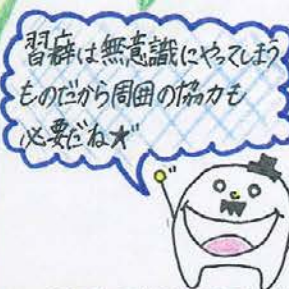 習癖は無意識にやってしまう
ものだから周囲の協力も
必要だね★